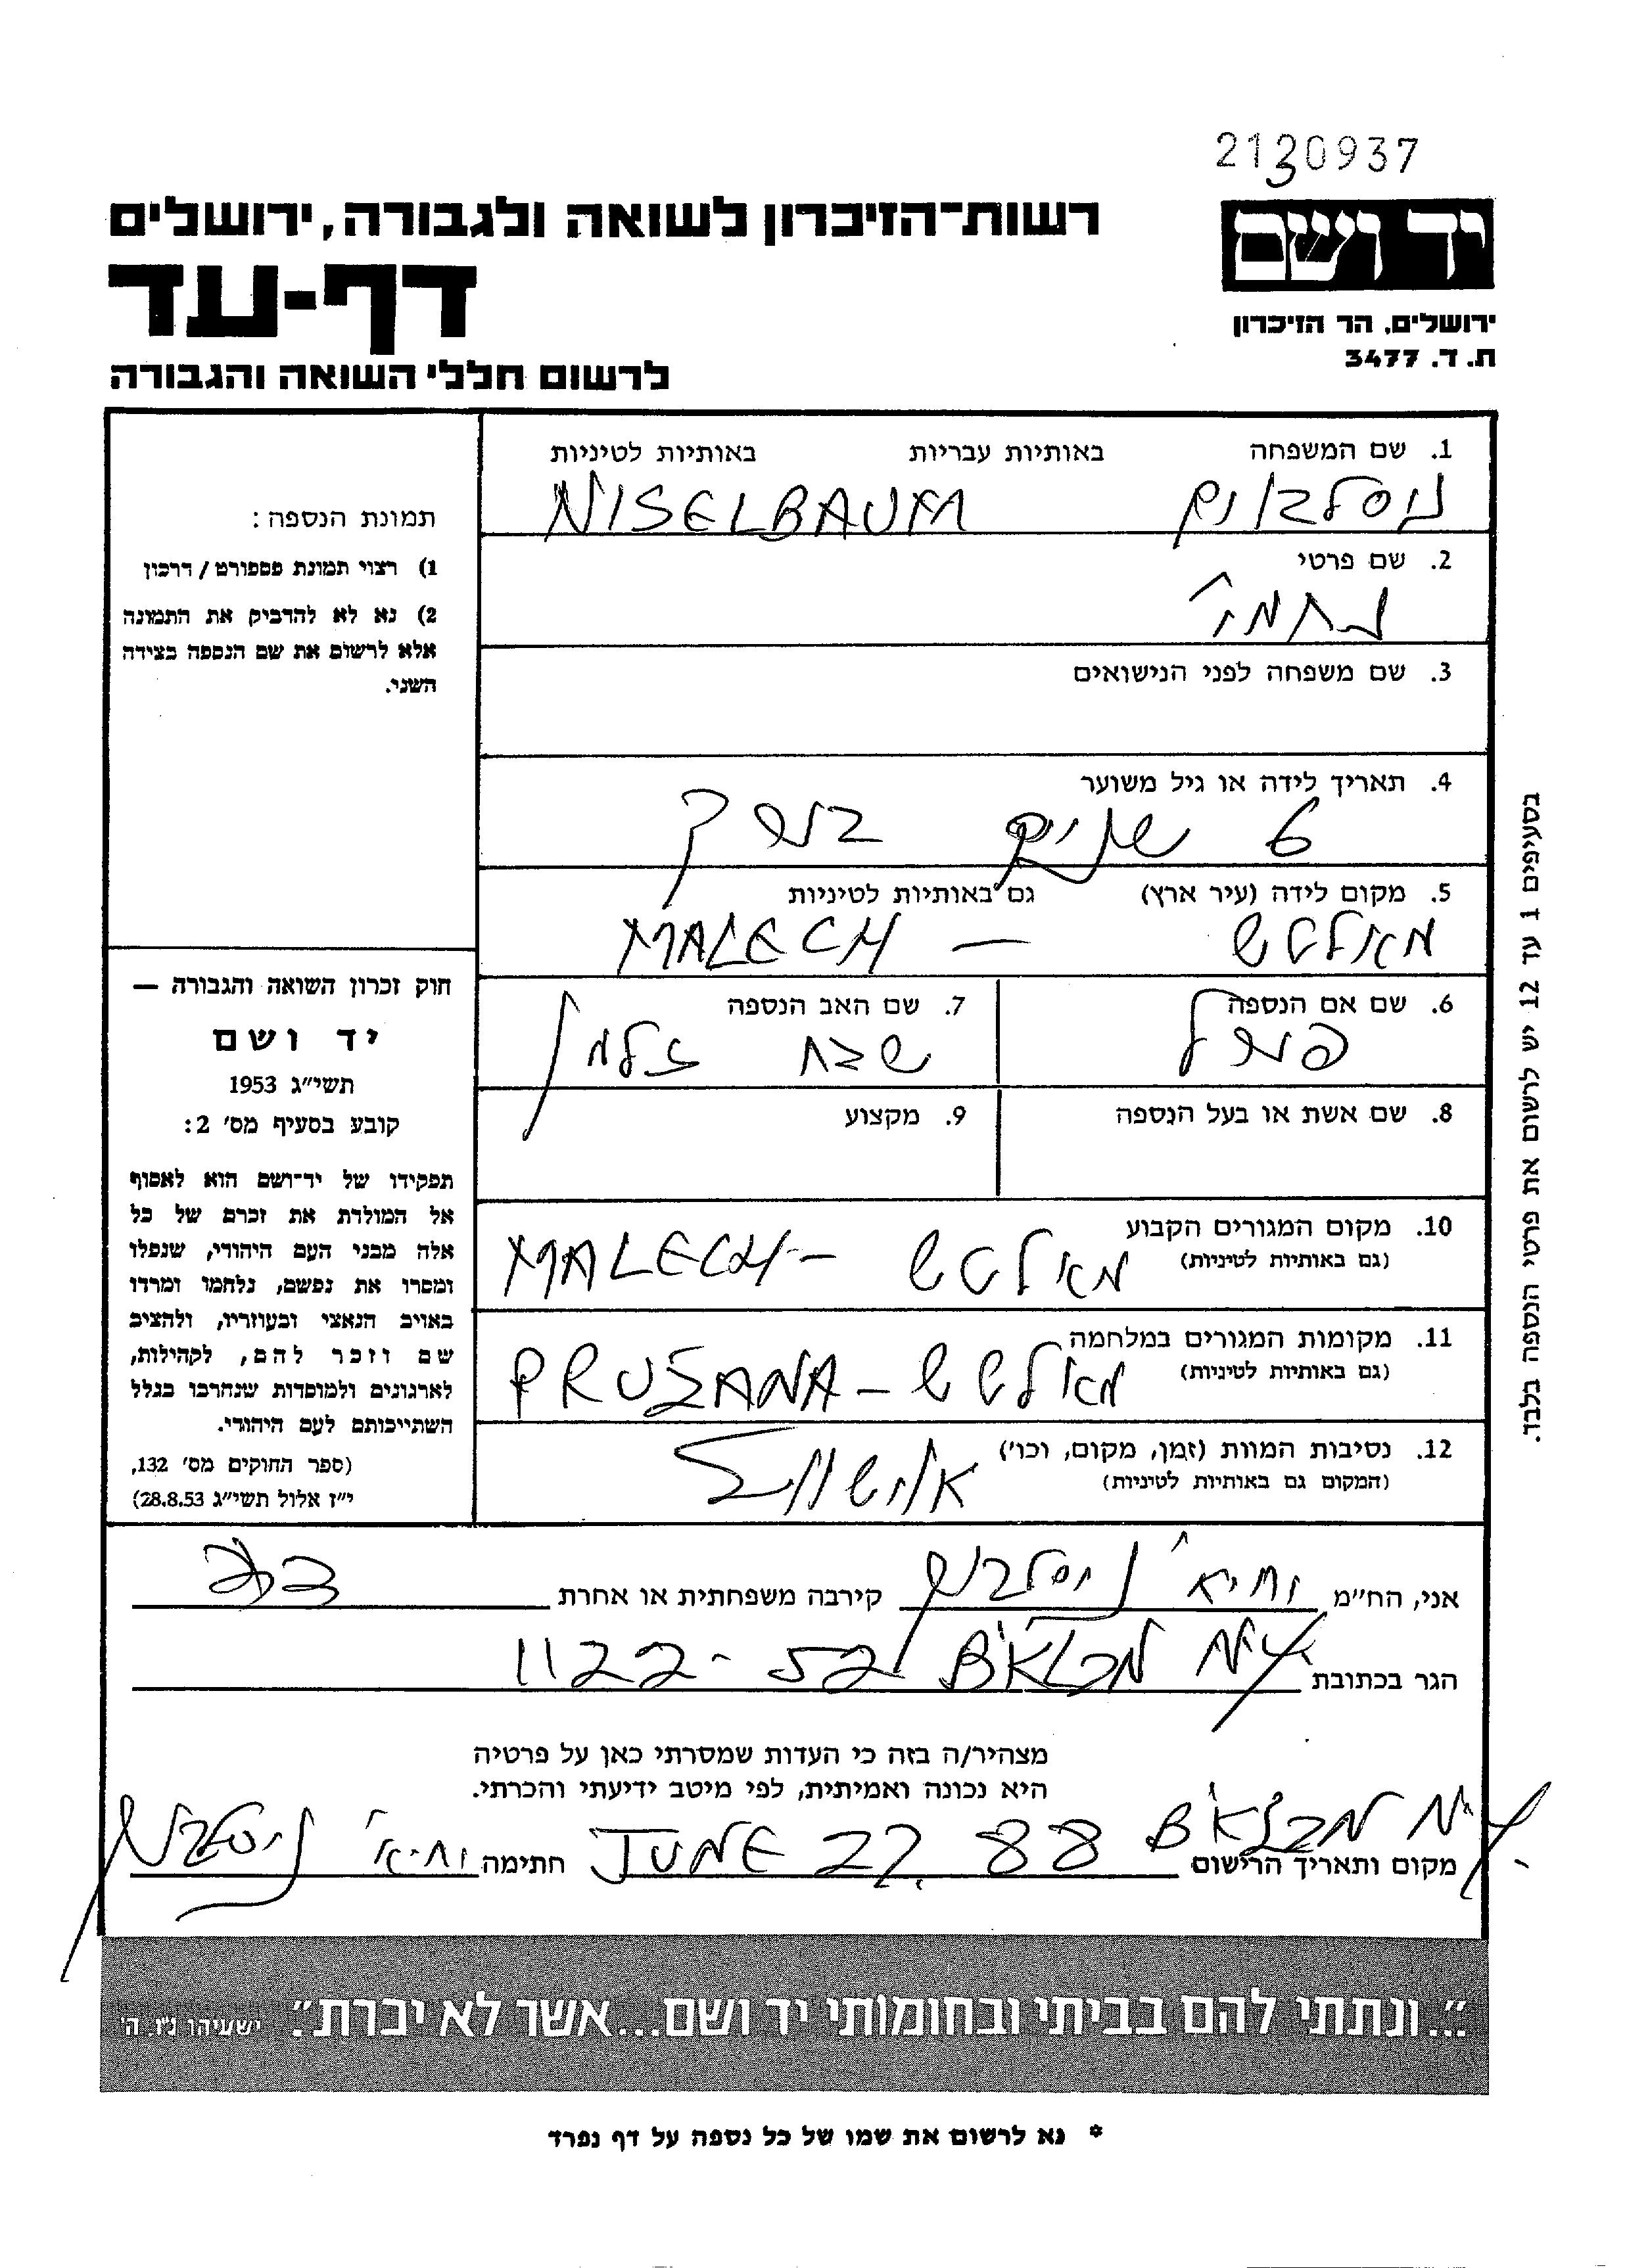 2130937
יד ושם
ירושלים, הר הזיכרון
ת. ד. 3477
רשות־הזיכרון לשואה ולגבורה, ירושלים
דף-עד
לרשום חללי השואה והגבורה
1. שם המשפחה באותיות עבריות באותיות לטיניות
ניסלבוים NISELBAUM
2. שם פרטי
נחמי'
3. שם משפחה לפני הנישואים
4. תאריך לידה או גיל משוער
6 שנים בערך
5. מקום לידה (עיר ארץ) גם באותיות לטיניות
מאלטש — MALECH
6. שם אם הנספה
7. שם האב הנספה
שבח זלמן
8. שם אשת או בעל הנספה
9. מקצוע
10. מקום המגורים הקבוע
(גם באותיות לטיניות)
מאלטש — MALECH
11. מקומות המגורים במלחמה
(גם באותיות לטיניות)
מאלטש — PRUZANA
12. נסיבות המוות (זמן, מקום, וכו')
(המקום גם באותיות לטיניות)
אוישוויץ
תמונת הנספה:
1) רצוי תמונת פספורט / דרכון
2) נא לא להדביק את התמונה
אלא לרשום את שם הנספה בצידה
השני.
חוק זכרון השואה והגבורה —
יד ושם
תשי״ג 1953
קובע בסעיף מס׳ 2:
תפקידו של יד־ושם הוא לאסוף
אל המולדת את זכרם של כל
אלה מבני העם היהודי, שנפלו
ומסרו את נפשם, נלחמו ומרדו
באויב הנאצי ובעוזריו, ולהציב
שם וזכר להם, לקהילות,
לארגונים ולמוסדות שנחרבו בגלל
השתייכותם לעם היהודי.
(ספר החוקים מס׳ 132,
י״ז אלול תשי״ג 28.8.53)
בסעיפים 1 עד 12 יש לרשום את פרטי הנספה בלבד.
אני, הח״מ ניסלבוים קירבה משפחתית או אחרת
הגר בכתובת 1122 - 52
מצהיר/ה בזה כי העדות שמסרתי כאן על פרטיה
היא נכונה ואמיתית, לפי מיטב ידיעתי והכרתי.
מקום ותאריך הרישום JUNE 22, 88 חתימה ניסלבוים
״...ונתתי להם בביתי ובחומותי יד ושם...אשר לא יכרת״. ישעיהו נ״ו, ה'
* נא לרשום את שמו של כל נספה על דף נפרד